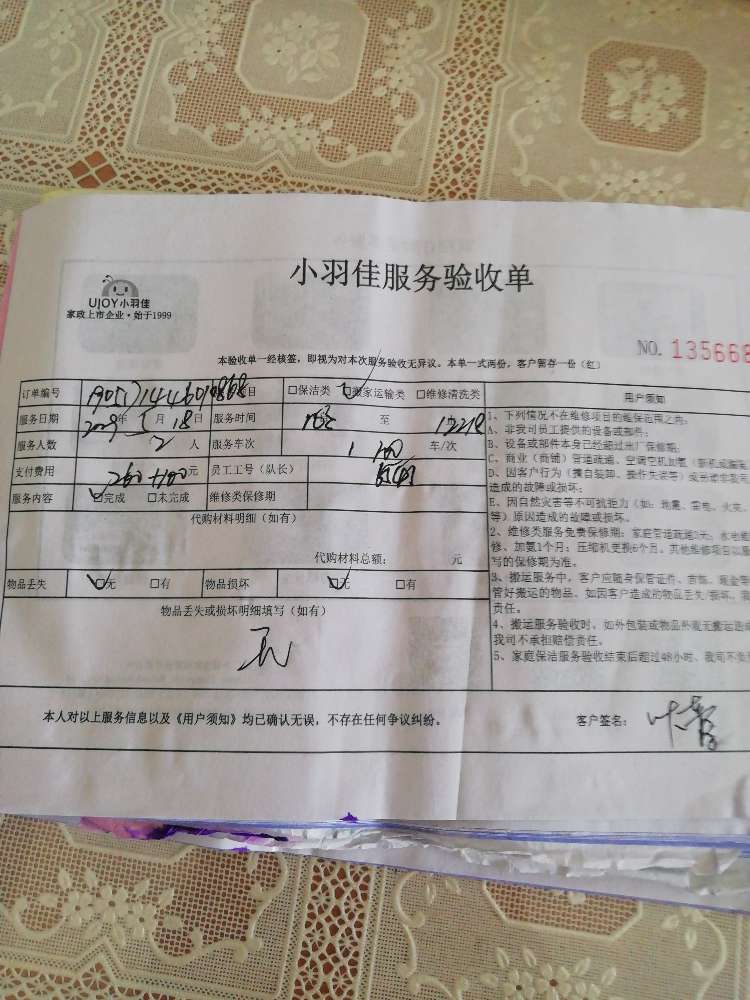 小羽佳服务验收单
UJOY小羽佳
家政上市企业·始于1999
NO. 135668
本验收单一经核签，即视为对本次服务验收无异议。本单一式两份，客户暂存一份（红）
订单编号 目 □保洁类 □搬家运输类 □维修清洗类 用户须知
服务日期 年 5 月 18 日 服务时间 至
服务人数 2 人 服务车次 1 车/次
支付费用 260+100 元 员工工号（队长）
服务内容 □完成 □未完成 维修类保修期
代购材料明细（如有）
代购材料总额： 元
物品丢失 □无 □有 物品损坏 □无 □有
物品丢失或损坏明细填写（如有）
无
1、下列情况不在维修项目的维保范围之内：
A、非我司员工提供的设备或部件；
B、设备或部件本身已经超过出厂保修期；
C、商业（商铺）管道疏通、空调它机加氨（新机或搬装
D、因客户行为（擅自装卸、操作失误等）或
造成的故障或损坏；
E、因自然灾害等不可抗拒力（如：地震、雷电、火灾、
等）原因造成的故障或损坏。
2、维修类服务免费保修期：家庭管道疏通
修、加氨1个月；压缩机更换6个月，其他维修项目以
写的保修期为准。
3、搬运服务中，客户应随身保管证件、首饰、现金等
管好搬运的物品，如因客户造成的物品丢失/损坏，我
责任。
4、搬运服务验收时，如外包装或物品外观无搬运造成
我司不承担赔偿责任。
5、家庭保洁服务验收结束后超过48小时，我司不
本人对以上服务信息以及《用户须知》均已确认无误，不存在任何争议纠纷。 客户签名：